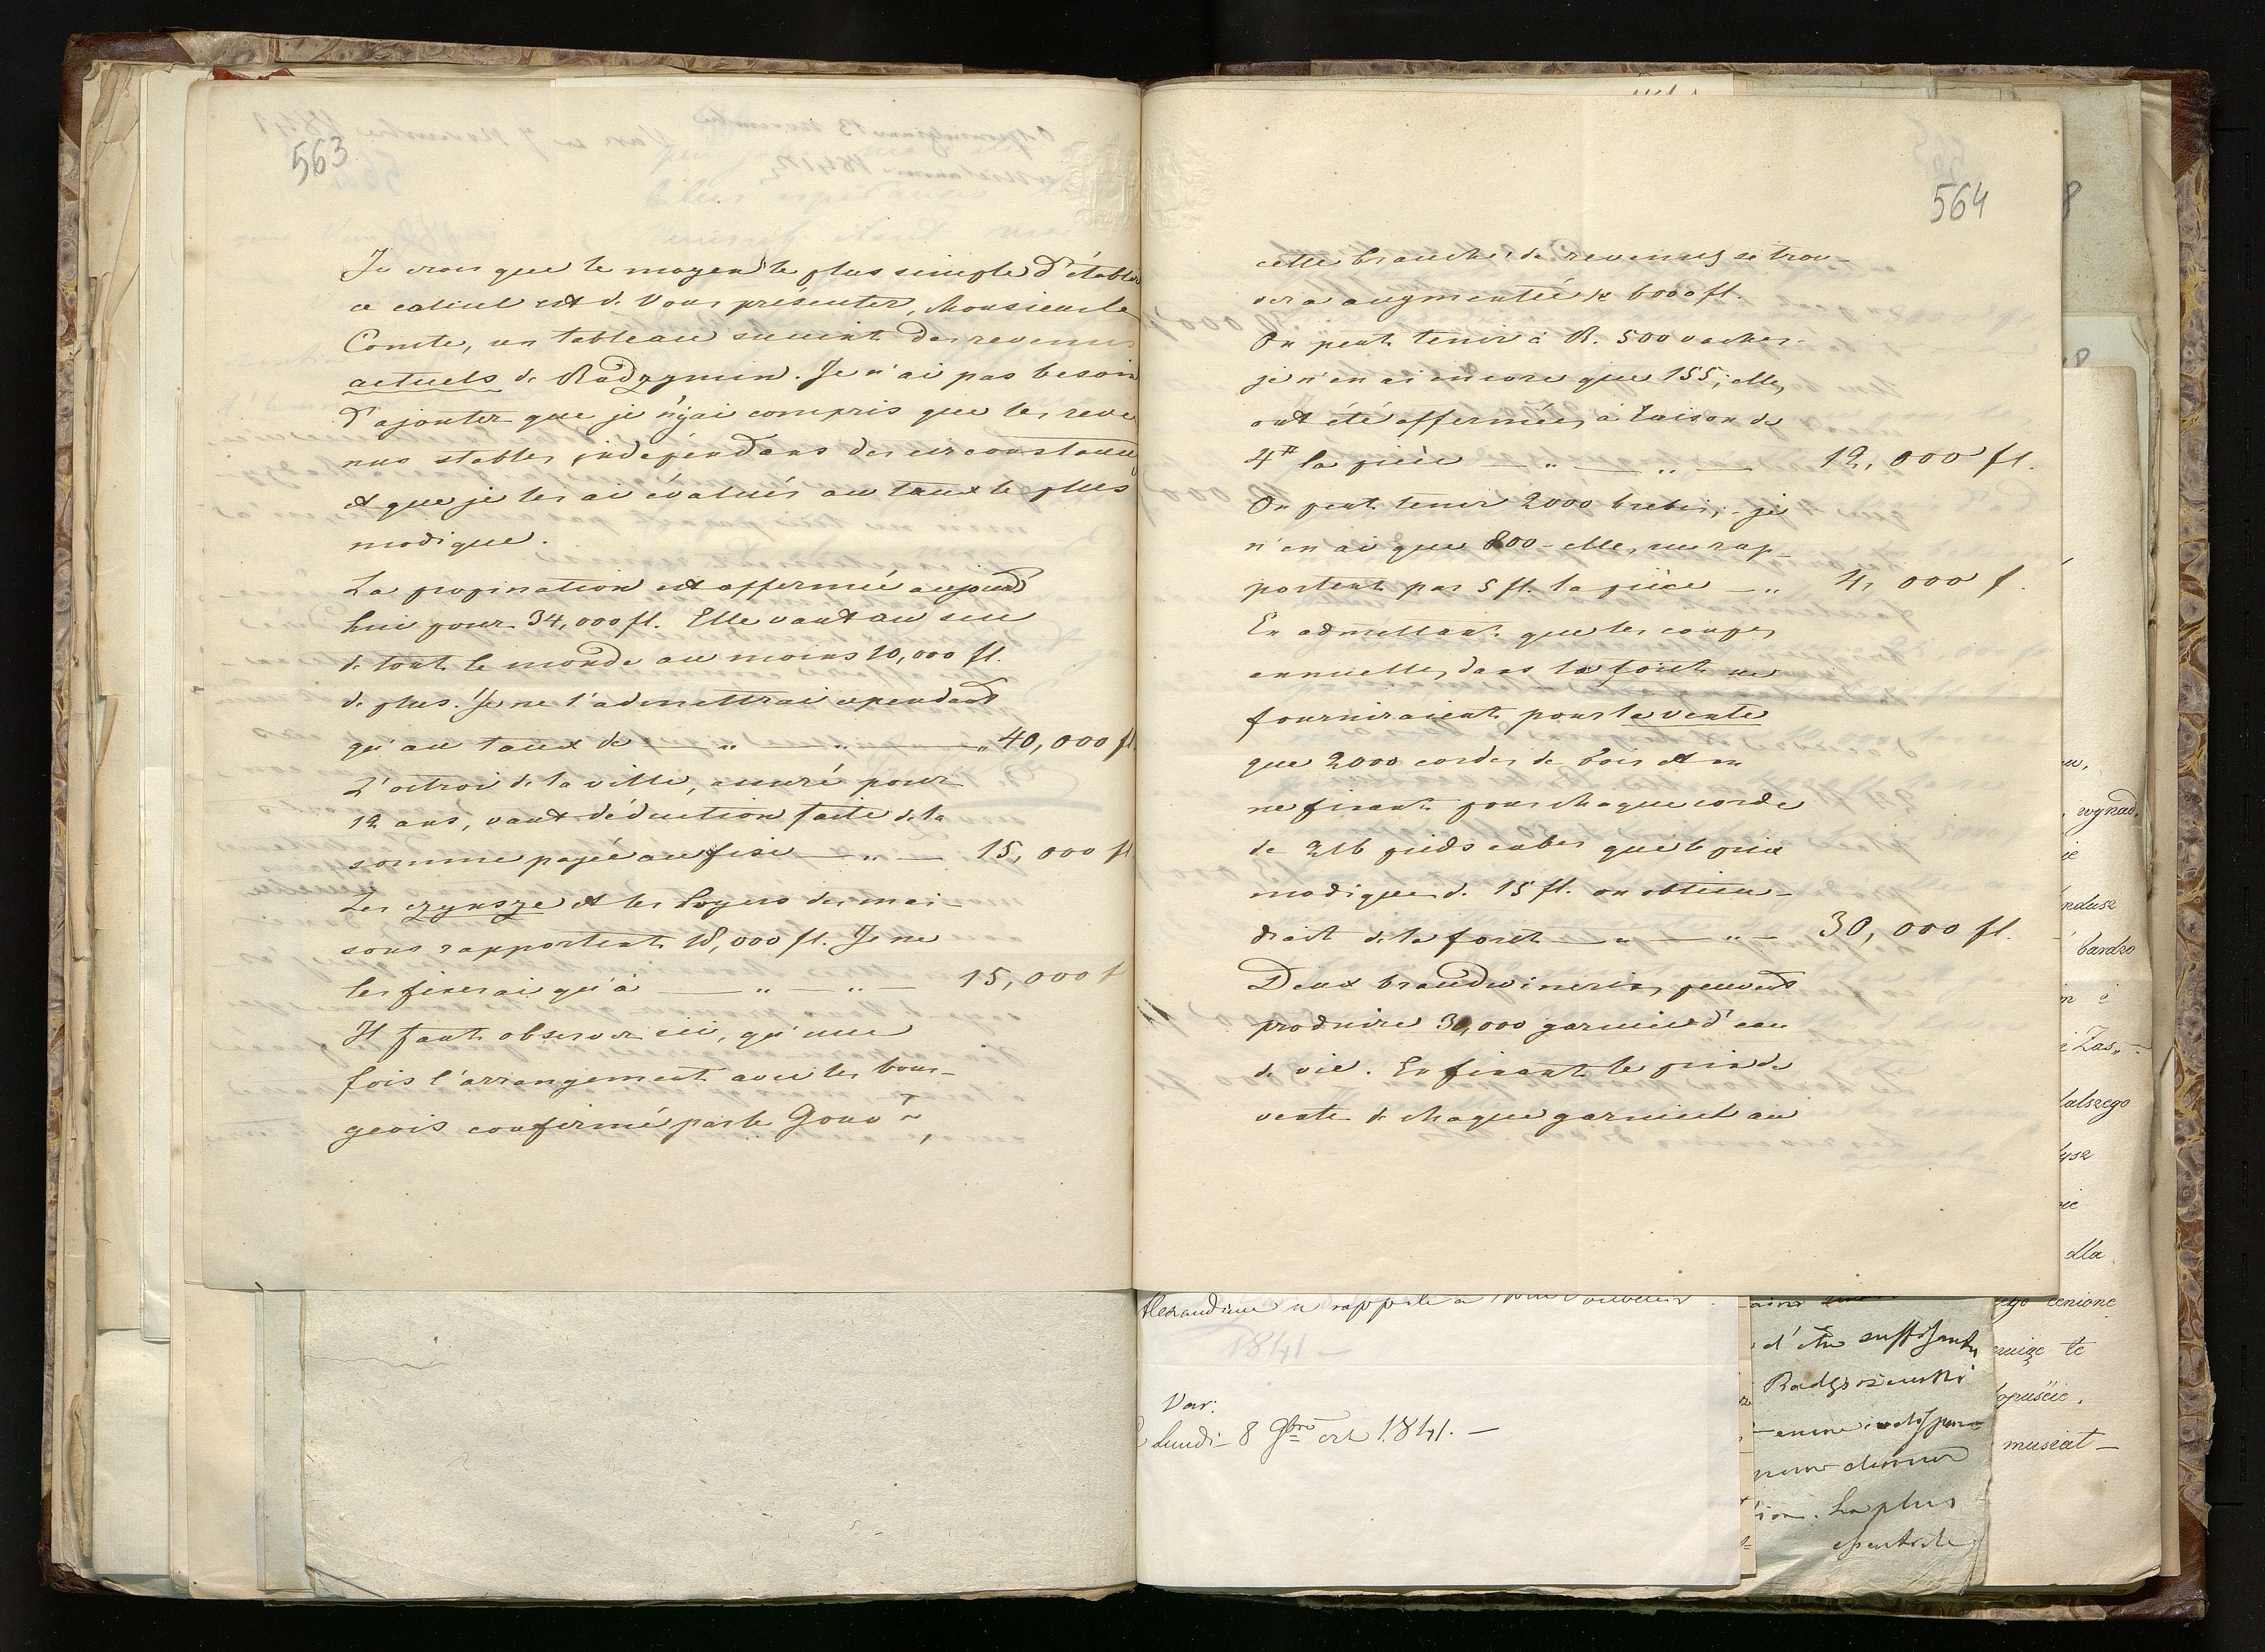 563
Je crois que le moyen le plus simple d'établir
ce calcul est de Vous présenter, Monsieur le
Comte, un tableau succint des revenus
actuels de Radzymin. Je n'ai pas besoin
d'ajouter que je n'y ai compris que les reve
nus stables, independans des circonstances
et que je les ai évalués au taux le plus
modique.
La propination est affermée aujourd'
hui pour 34,000 fl. Elle vaut au seu
de tout le monde au moins 10,000 fl.
de plus. Je ne l'admettrai cependant
qu'au taux de — " — " — " 40,000 fl
L'octroi de la ville, assuré pour
12 ans, vaut déduction faite de la
somme payée au fisc — " — 15,000 fl
Les czynsze et les loyers des mai
sons rapportent 18,000 fl. Je ne
les fixerai qu'à — " — " — 15,000 f
Il faut observer ici, qu'une
fois l'arrangement avec les bour-
geois confirmé par le Gouvt,
564
cette branche de revenus se trou-
vera augmentée de 6000 fl.
On peut tenir à R. 500 vaches.
je n'en ai encore que 155; elles
ont été affermées à raison de
4# la pièce — " — " — 12,000 fl.
On peut tenir 2000 brebis, - je
n'en ai que 800 - elles me rap-
portent par 5 fl. la pièce — " 4,000 f.
En admettant que les coupes
annuelles dans la forêt ne
fourniraient pour la vente
que 2000 cordes de bois et en
ne fixant pour chaque corde
de 216 pieds cubes que le prix
modique de 15 fl. on obtien-
drait de la forêt — " — " — 30,000 fl.
Deux brandwineries peuvent
produire 30,000 garniec d'eau
de vie. En fixant le prix de
vente de chaque garniec au
Alexandrine se rappelle a
Var:
Lundi - 8 9bre 1841. —
d'être suffisante
La plus
wynad.
bardzo
i Zas„
dalszego
dla
cenione
te
opuście.
musiat —